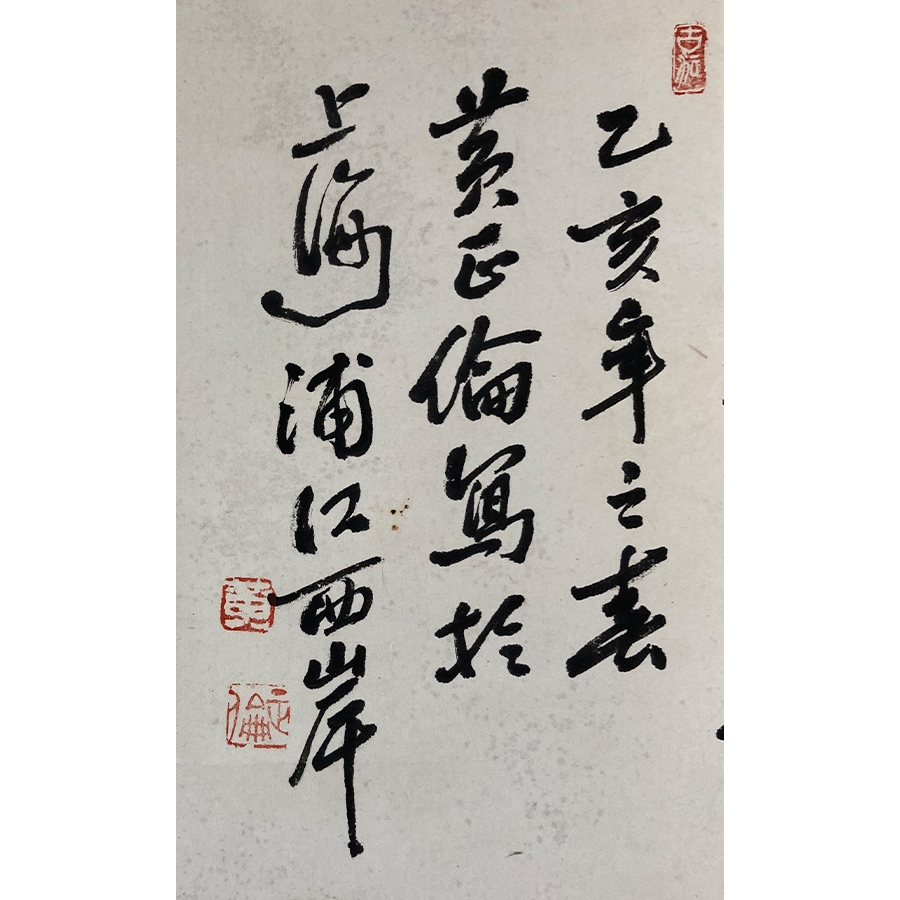 乙亥年之春
黄正倫寫於
上海浦江西岸
黄
正倫